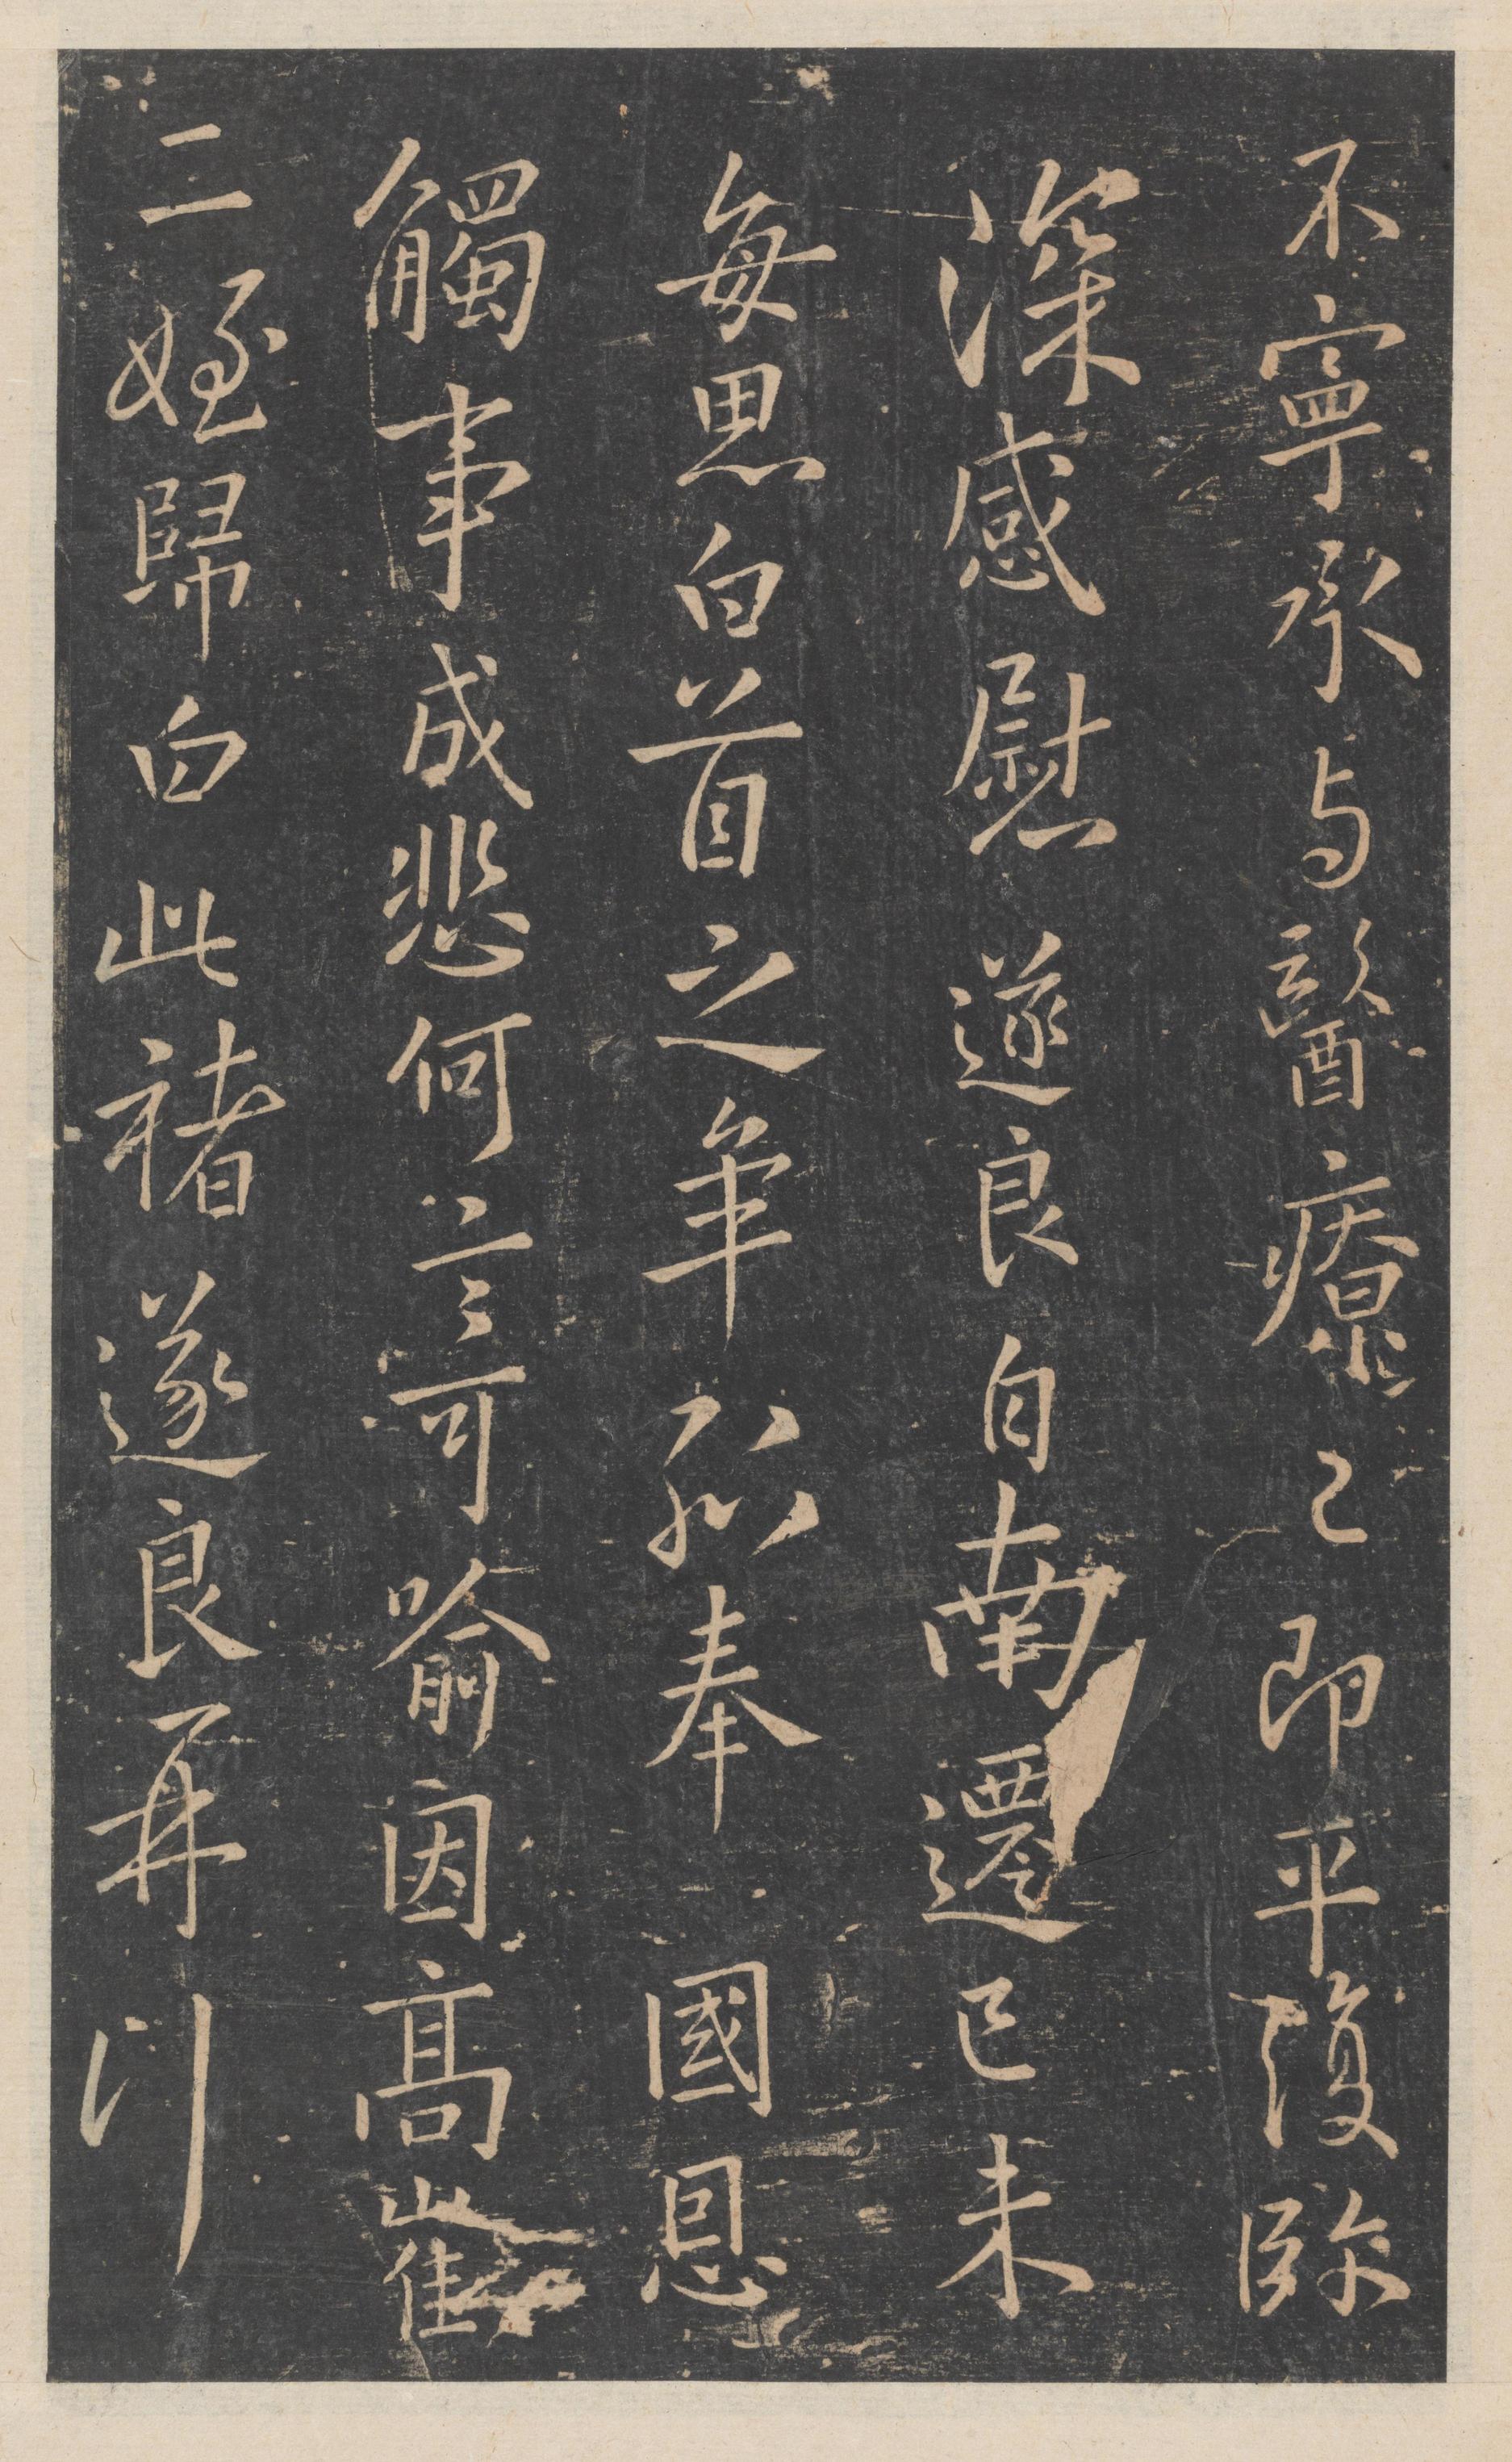 不寧承与醫療之即平復歟
深感慰遂良自南遷已来
每思白首之年孤奉國恩
觸事成悲何言可喻因高崔
二姪歸白此褚遂良再拜